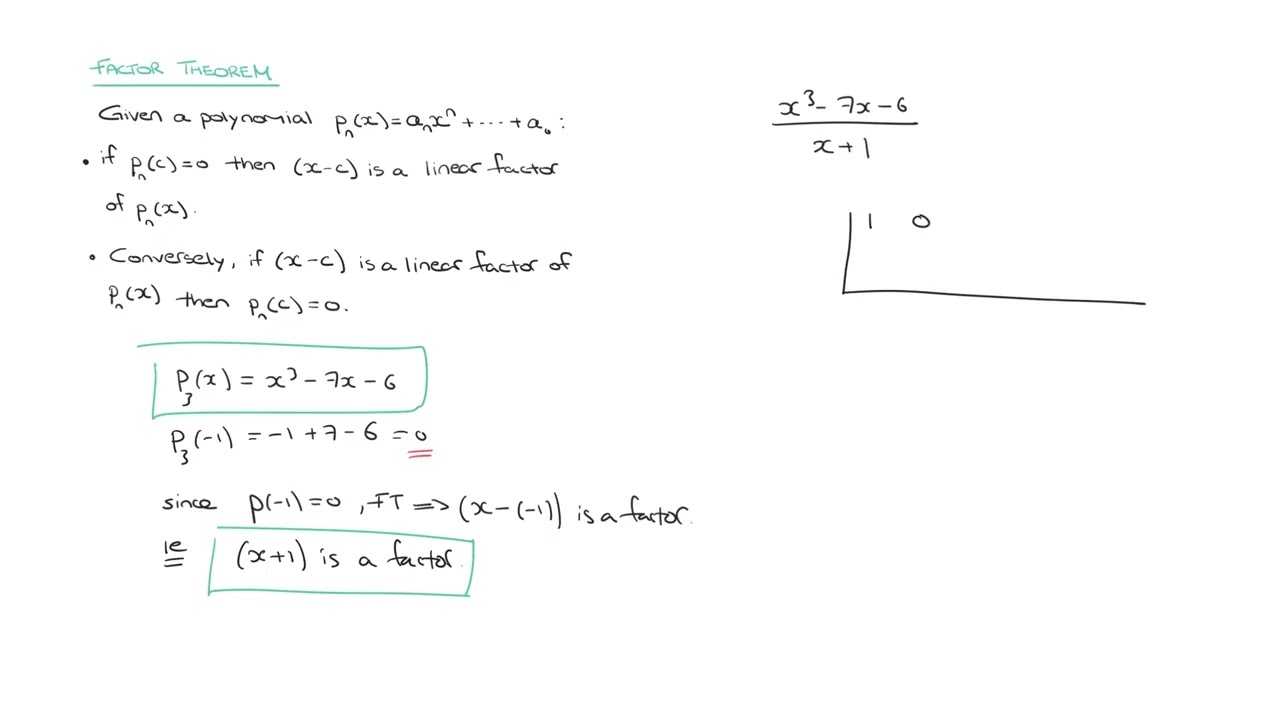 FACTOR THEOREM
Given a polynomial pₙ(x)=aₙxⁿ+⋯+a₀:
• if pₙ(c)=0 then (x-c) is a linear factor
of pₙ(x).
• Conversely, if (x-c) is a linear factor of
pₙ(x) then pₙ(c)=0.
P₃(x) = x³ - 7x - 6
P₃(-1) = -1 + 7 - 6 = 0
since p(-1)=0, FT ⇒ (x-(-1)) is a factor.
ie (x+1) is a factor.
x³ - 7x - 6
x + 1
1 0